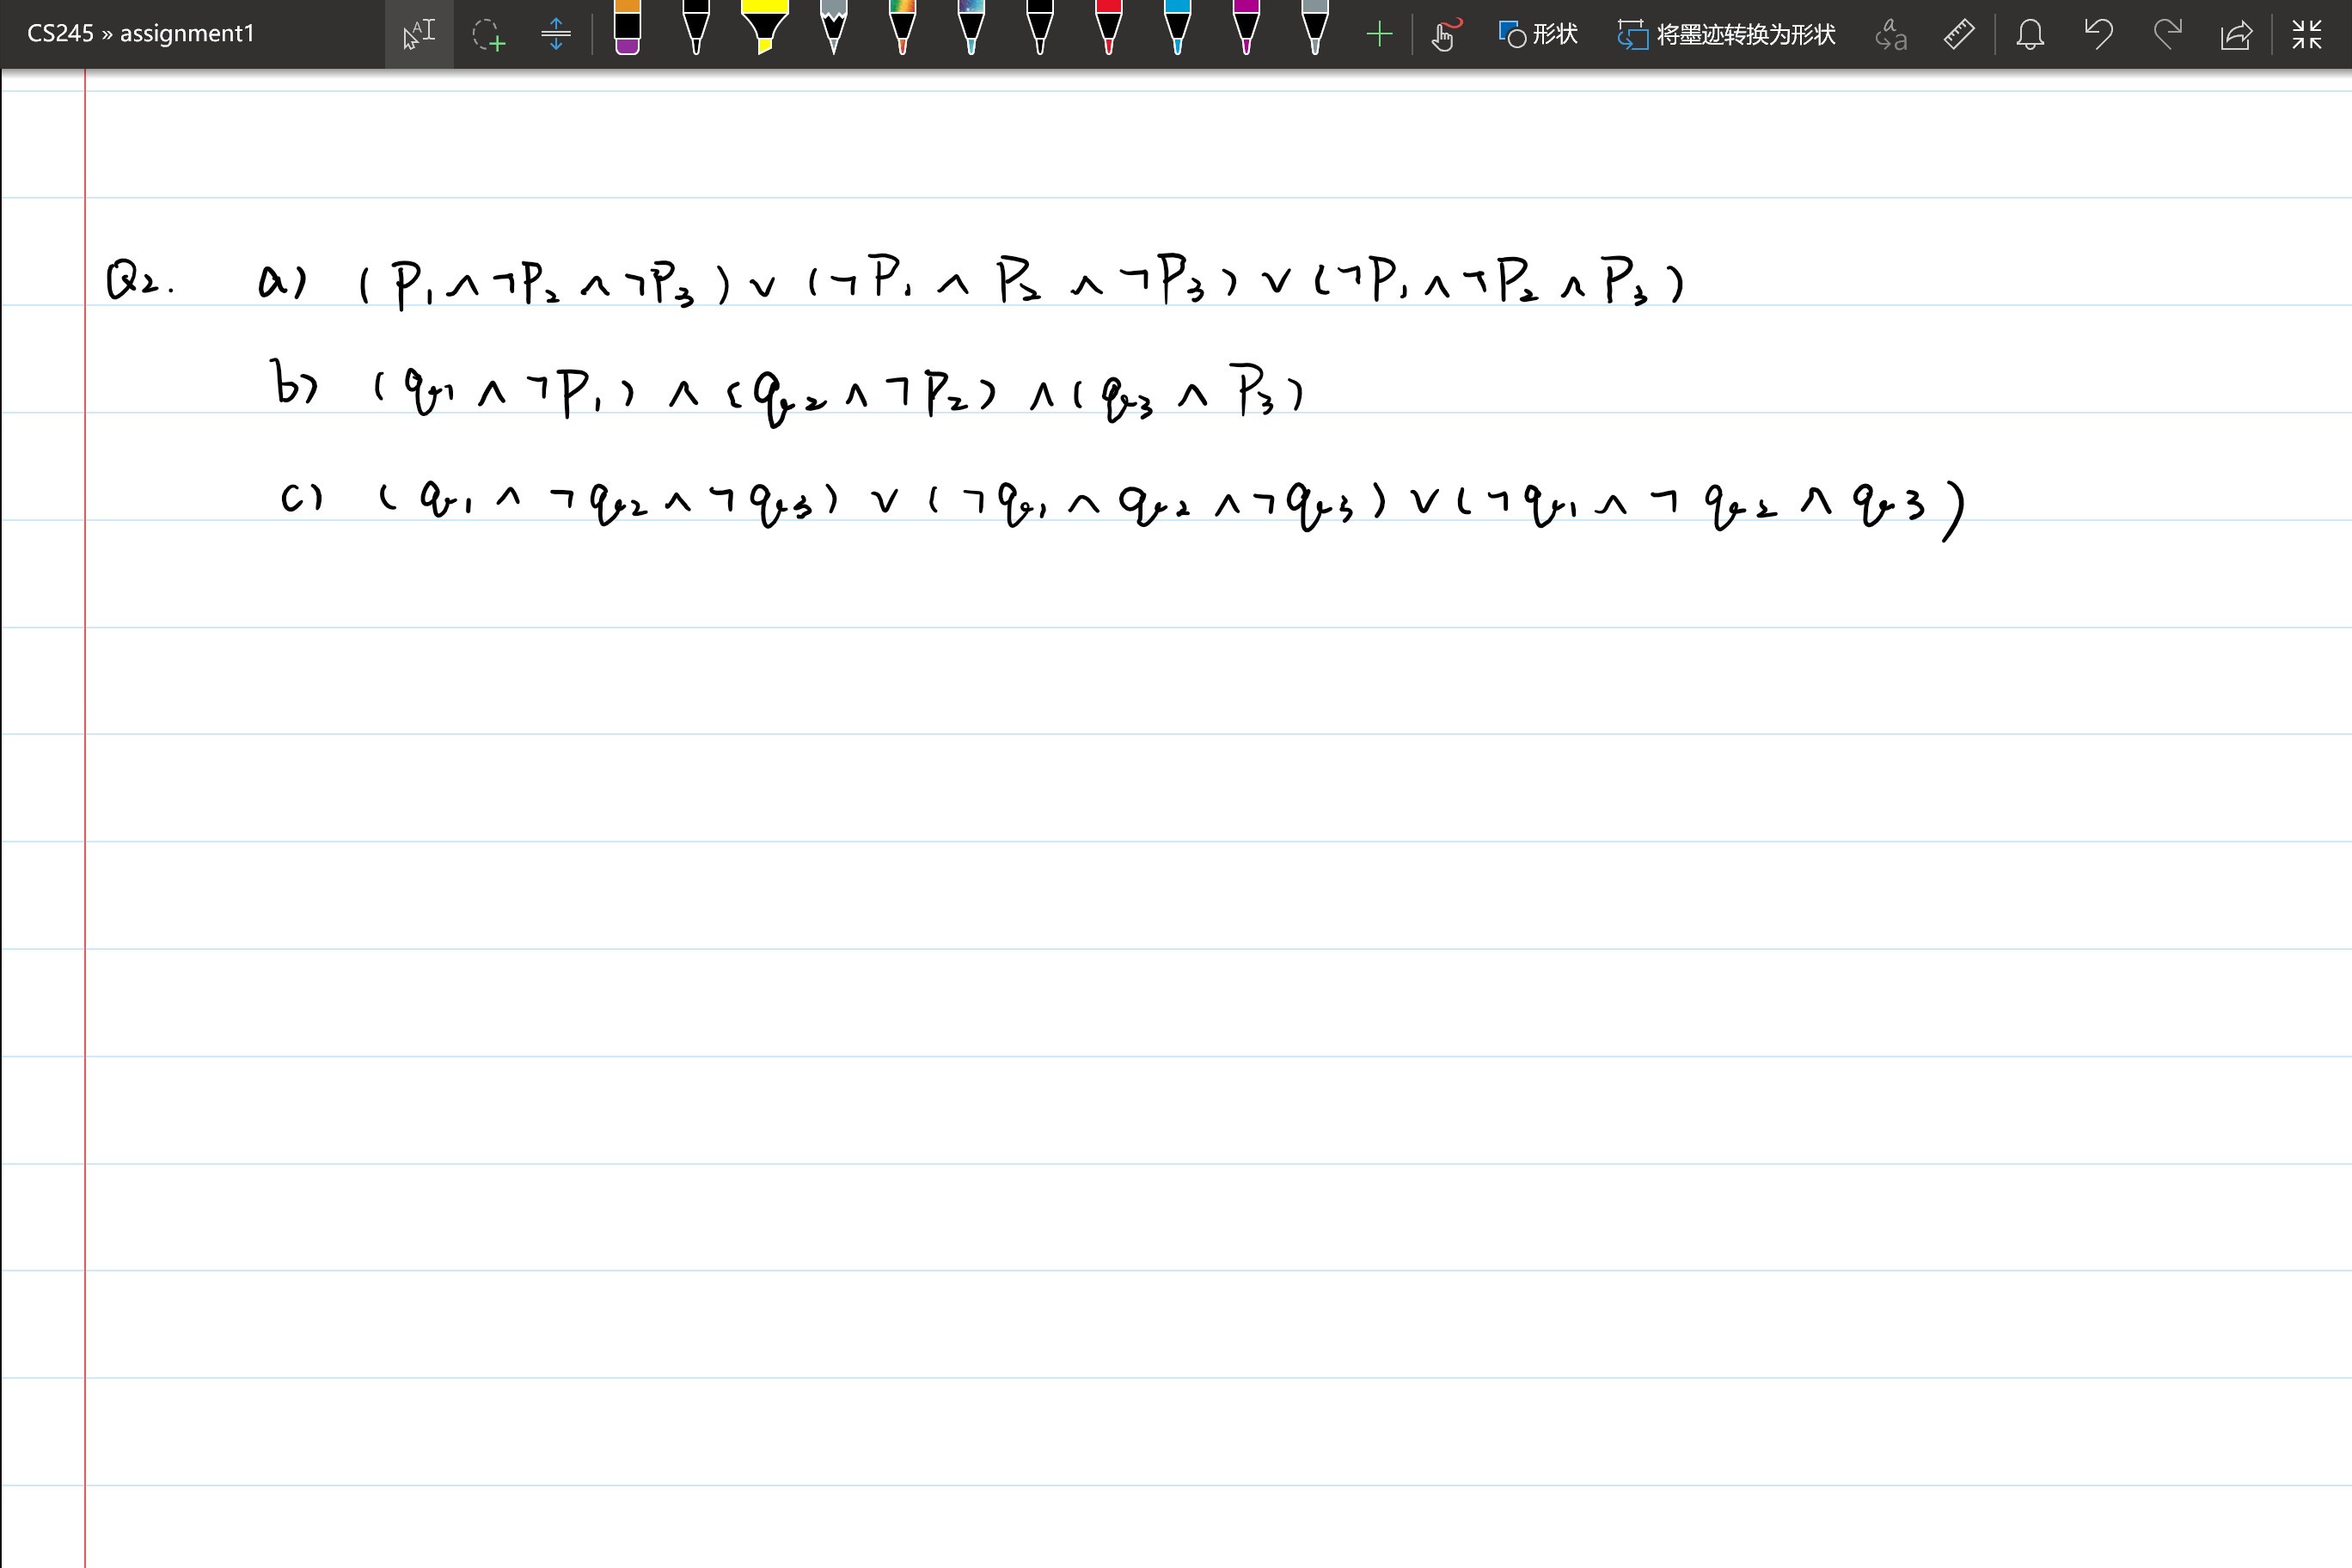 CS245 » assignment1 形状 将墨迹转换为形状
Q2. a) (P₁ ∧ ¬P₂ ∧ ¬P₃) ∨ (¬P₁ ∧ P₂ ∧ ¬P₃) ∨ (¬P₁ ∧ ¬P₂ ∧ P₃)
b) (q₁ ∧ ¬P₁) ∧ (q₂ ∧ ¬P₂) ∧ (q₃ ∧ P₃)
c) (q₁ ∧ ¬q₂ ∧ ¬q₃) ∨ (¬q₁ ∧ q₂ ∧ ¬q₃) ∨ (¬q₁ ∧ ¬q₂ ∧ q₃)